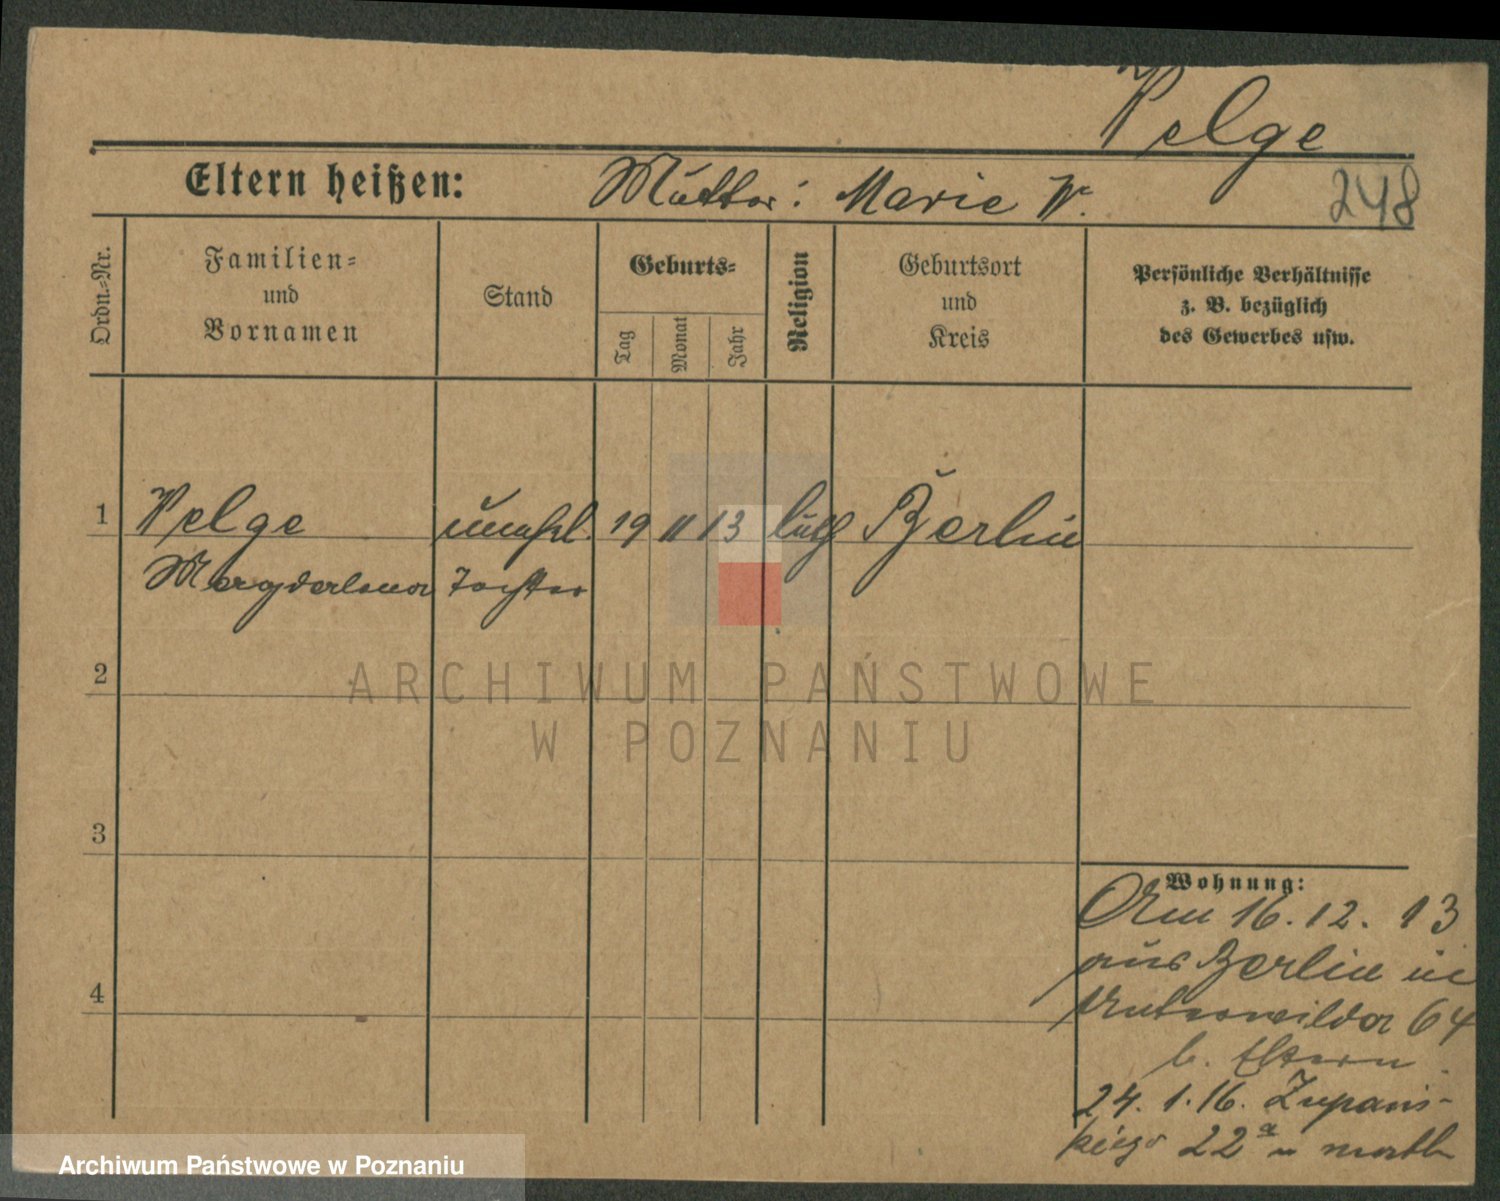 Velge
Eltern heißen: Mutter: Marie V.
248
Ordn.-Nr.
Familien-
und
Vornamen
Stand
Geburts-
Tag
Monat
Jahr
Religion
Geburtsort
und
Kreis
Persönliche Verhältnisse
z. B. bezüglich
des Gewerbes usw.
1 Velge unehel. 19 11 13 luth Berlin
Magdalena Tochter
2
ARCHIWUM PAŃSTWOWE
W POZNANIU
3
4
Wohnung:
Am 16. 12. 13
aus Berlin in
Unterwilda 64
b. Eltern
24. 1. 16. Żupańs-
kiego 22a
Archiwum Państwowe w Poznaniu